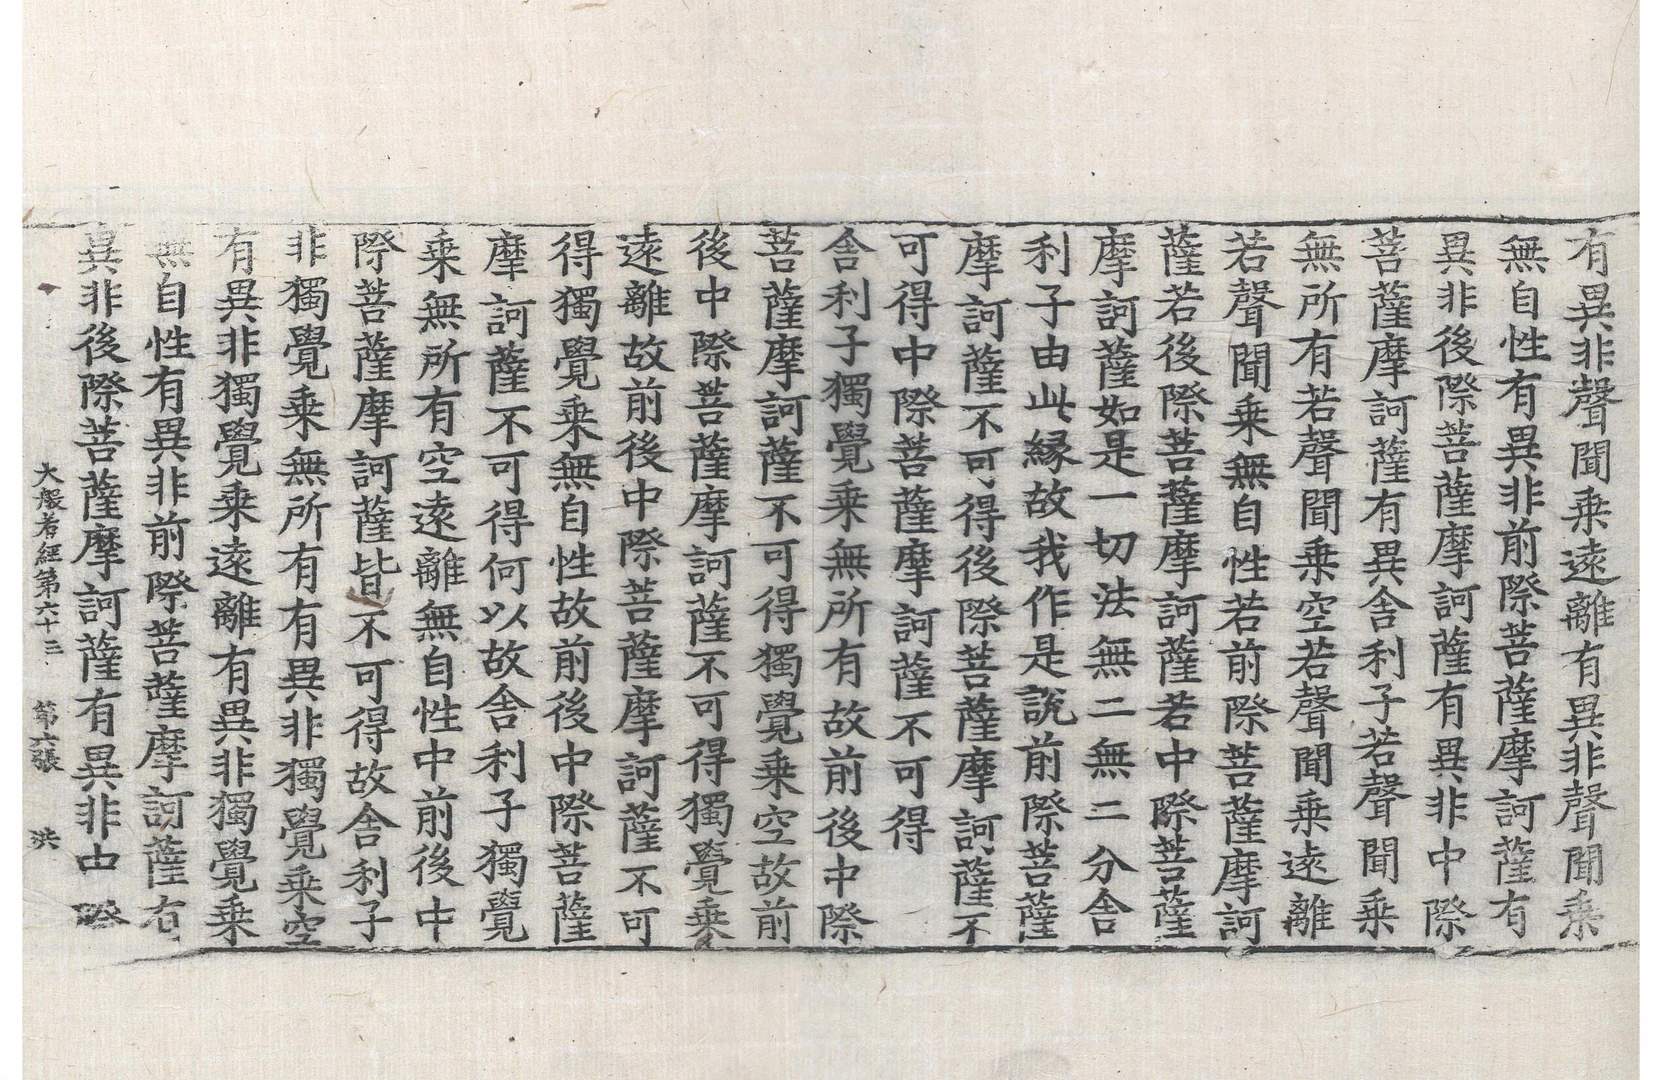 有異非聲聞乘遠離有異非聲聞乘
無自性有異非前際菩薩摩訶薩有
異非後際菩薩摩訶薩有異非中際
菩薩摩訶薩有異舍利子若聲聞乘
無所有若聲聞乘空若聲聞乘遠離
若聲聞乘無自性若前際菩薩摩訶
薩若後際菩薩摩訶薩若中際菩薩
摩訶薩如是一切法無二無二分舍
利子由此緣故我作是說前際菩薩
摩訶薩不可得後際菩薩摩訶薩不
可得中際菩薩摩訶薩不可得
舍利子獨覺乘無所有故前後中際
菩薩摩訶薩不可得獨覺乘空故前
後中際菩薩摩訶薩不可得獨覺乘
遠離故前後中際菩薩摩訶薩不可
得獨覺乘無自性故前後中際菩薩
摩訶薩不可得何以故舍利子獨覺
乘無所有空遠離無自性中前後中
際菩薩摩訶薩皆不可得故舍利子
非獨覺乘無所有有異非獨覺乘空
有異非獨覺乘遠離有異非獨覺乘
無自性有異非前際菩薩摩訶薩有
異非後際菩薩摩訶薩有異非中際
大般若經第六十三 第六張 洪